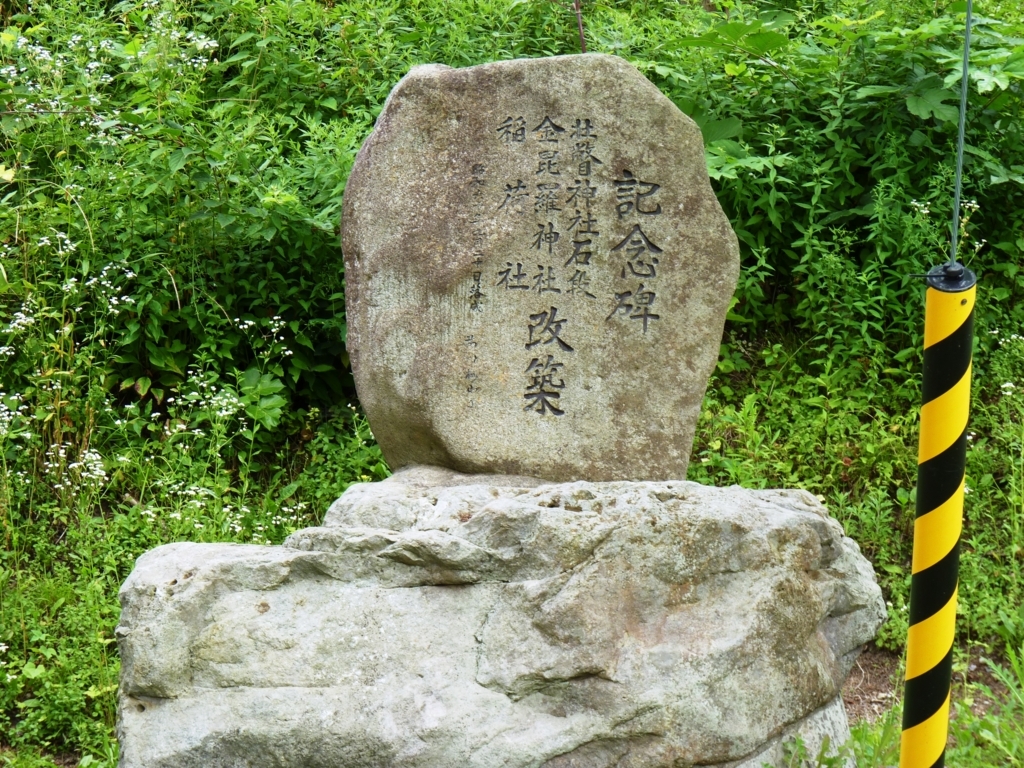 記念碑
壮瞥神社石段
金昆羅神社
稲荷社
改築